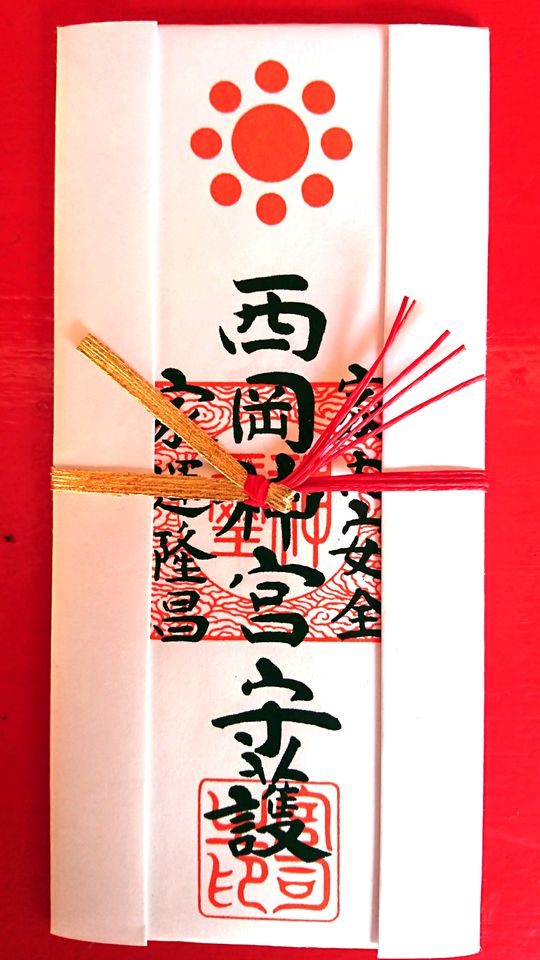 家内安全
西岡神宮守護
家運隆昌
宮司之印